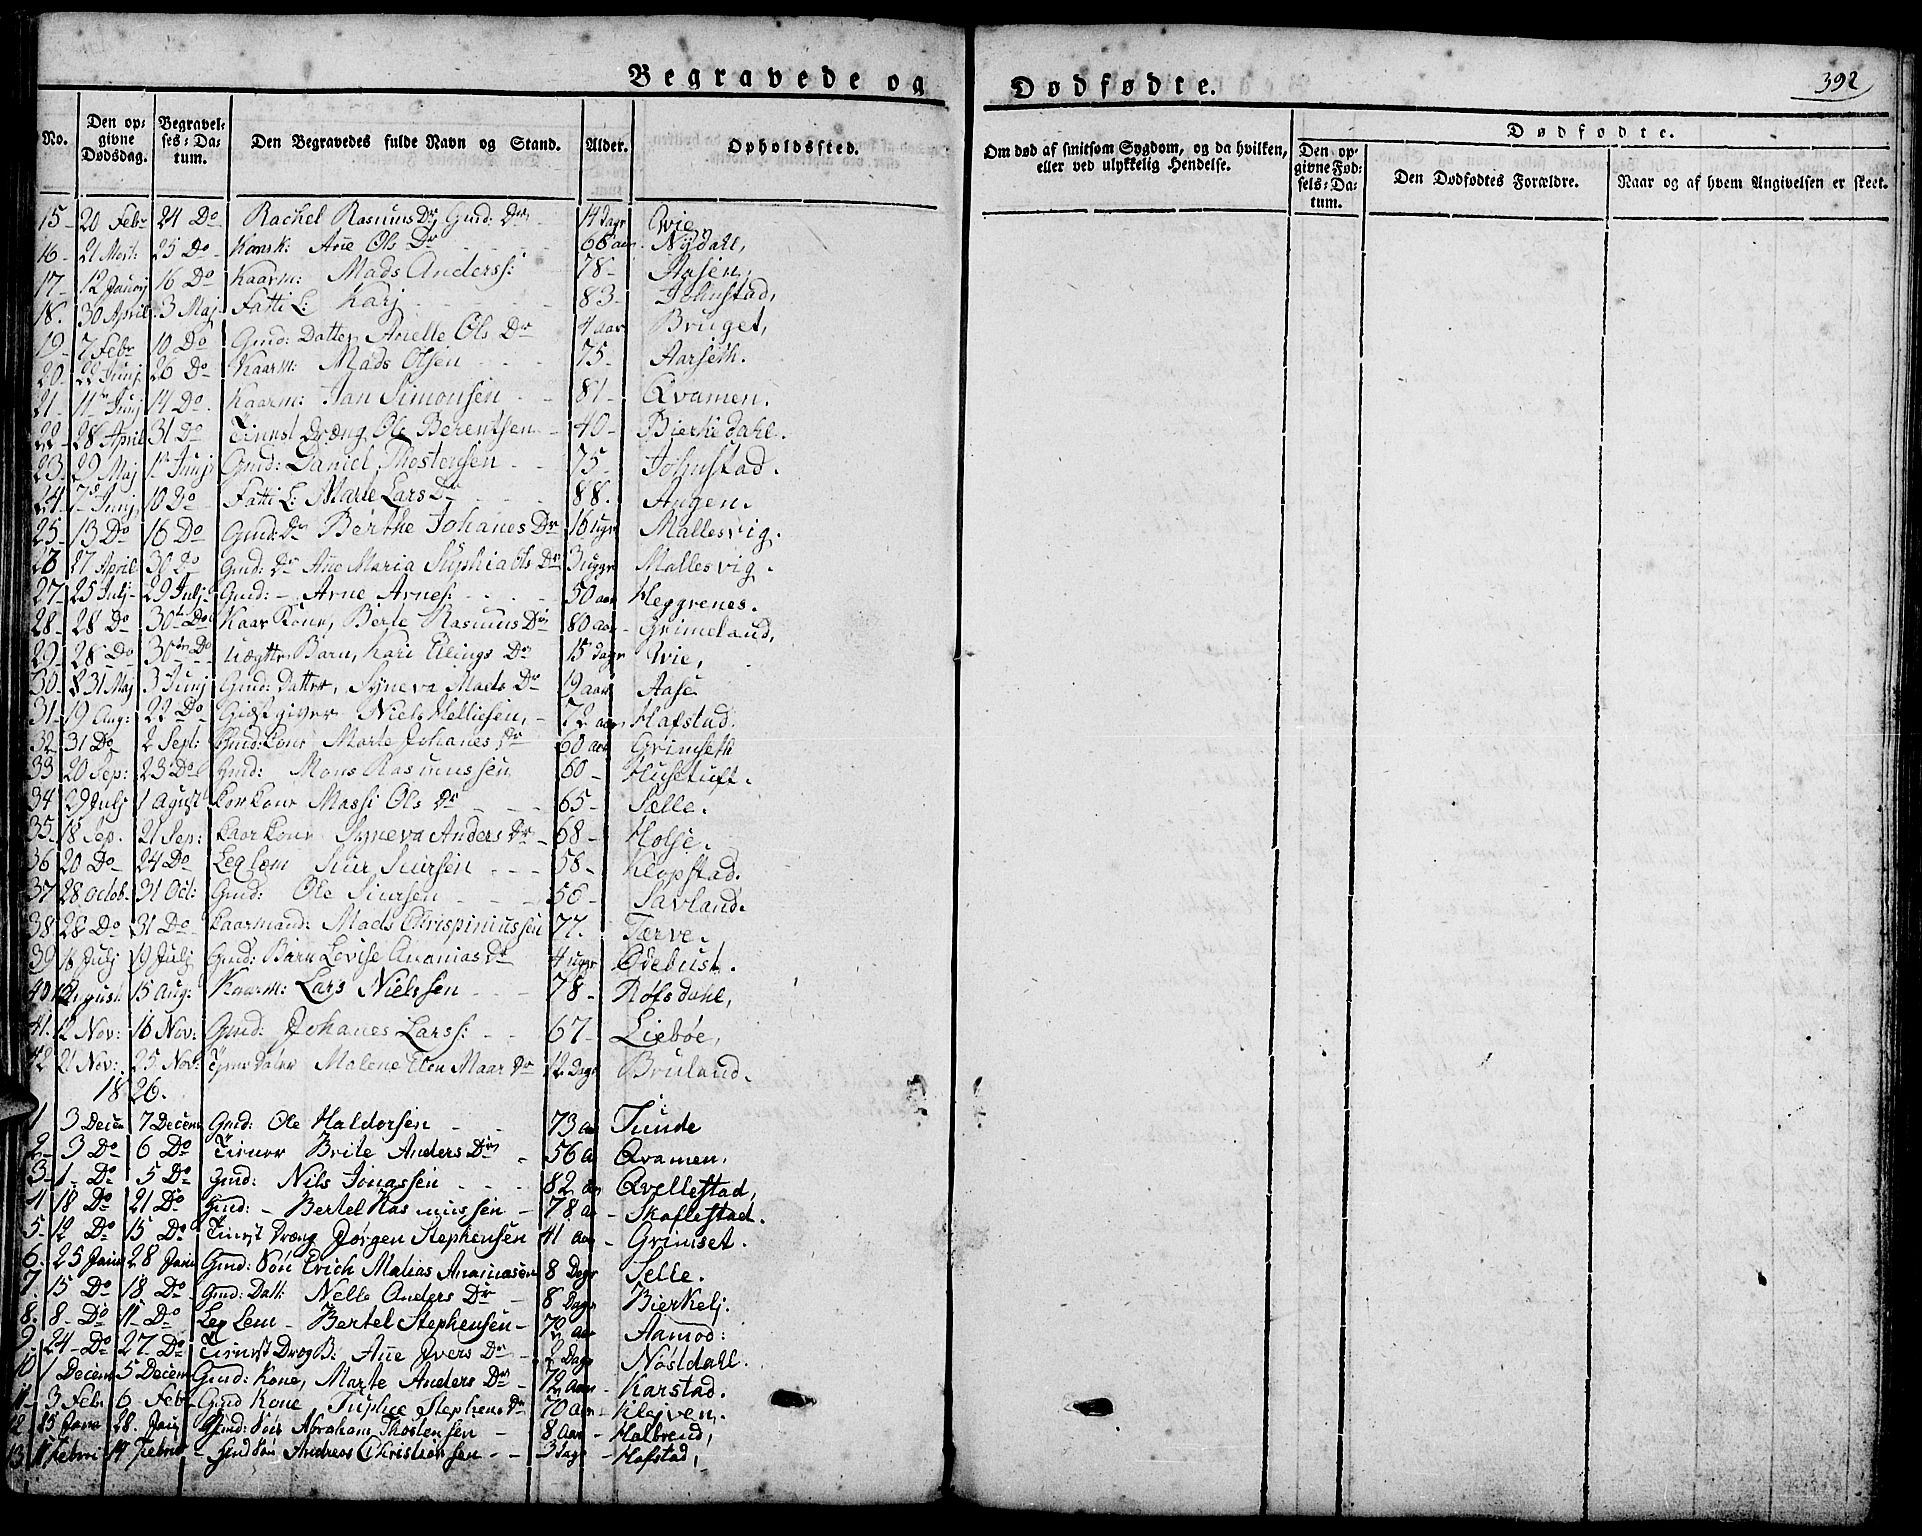 Begravede og Dødfødte.
392
No. Den opgivne Dødsdag. Begravelses-Datum. Den Begravedes fulde Navn og Stand. Alder. Opholdssted. Om død af smitsom Sygdom, og da hvilken, eller ved ulykkelig Hendelse. Dødfødte. Den opgivne Fødsels-Datum. Den Dødfødtes Forældre. Naar og af hvem Angivelsen er skeet.
15- 20 Febr 24 Do Rachel Rasmus Dr, Gmd: Dr 14 dagr Wie,
16- 21 25 Do Ane Ols Dr 66 aar Nydahl,
17- 12 16 Do Kaarm: Mads Anderss: 78- Aasen,
18. 30 April 3 Maj Fatti L: Karj 83- Johnstad,
19- 7 Febr 10 Do Gmd: Datter, Anelle Ols Dr 4 aar Bruget,
20- 22 Junj 26 Do Kaarm: Mads Olsen 75- Aarseth.
21- 11 Junj 14 Do Kaarm: Jan Simonsen 81- Qvamen.
22- 28 April 31 Do Tienst Dræng Ole Berentsen 40- Bierkedahl.
23. 29 Maj 1 Junj Gmd: Daniel Thostensen 75- Johnstad.
24. 7 Junj 10 Do Fatti L: Marte Lars Dr 88. Angen.
25- 13 Do 16 Do Gmd: Dr Berthe Johanes Dr 16 ugr Mallesvig.
26 27 April 30 Do Gmd: Dr Ane Maria Suphia Ols Dr 3 uggr Mallesvig.
27- 25 Julj- 29 Julj Gmd: - Arne Arnes: 50 aar Heggrenes.
28- 28 Do 30 Do Kaar Kone, Berte Rasmus Dr 80 aar- Grimeland,
29- 28 Do 30 Do Uægtte Barn, Kari Elings Dr 15 dagr Wie,
30- 31 Maj 3 Junj Gmd: Datter, Syneva Mads Dr 19 aar Aase
31- 19 Aug: 22 Do Giestgiver Niels Helliesen, 72 aar Hafstad.
32 31 Do 2 Sept: Gmd: Kone Marte Johanes Dr 60 aar Grimseth
33 20 Sep: 23 Do Gmd: Mons Rasmussen 60- Husetuft.
34 29 Julj 1 Agust Massi Ols Dr 65- Sælle.
35. 18 Sep. 21 Sep: Kaar Kone Syneva Anders Dr 68- Holse.
36 20 Do 24 Do Leg Lem Siur Siursen 58- Klopstad.
37 28 Octob. 31 Oct: Gmd: Ole Siursen 50- Savland.
38. 28 Do 31 Do Kaarmand: Mads Chrispiniussen 77. Tærve.
39 16 Julj 19 Julj Gmd: Barn Lovise Ananias Dr 4 uggr Ødebust.
40 August 15 Aug: Kaarm: Lars Nielssen 78- Røfsdahl,
41. 12 Nov: 16 Nov: Gmd: Johanes Larss: 67- Liebøe,
42 21 Nov: 25 Nov: Malene Elen Maar Dr 12 Dage Bruland.
1826.
1 3 Decem 7 Decem Gmd: Ole Haldorsen 73 aar Tunde
2- 3 Do 6 Do Brite Anders Dr 56 a Qvamen.
3- 1- Do 5 Do Gmd: Nils Jonassen 82 aar Qvellestad,
4 18 Do 21 Do Gmd: - Bertel Rasmussen - 78 a- Skaflestad.
5- 12 Do 15 Do Tienst Dræng Jørgen Stephensen 41 aar- Grimset.
6. 25 Janu 28 Janu Gmd: Søn Erich Matias Ananiasen 8 Dagr Selle.
7. 15 Do 18 Do Gmd: Datt: Nelle Anders Dr - 8 Dagr Bierkelj.
8. 8- Do 11- Do Leg Lem - Bertel Stephensen - 70 aar Aamod:
9- 24- Do 27- Do Tienst Drog B: Ane Ivers Dr - 2 Dage Nøstdahl.
10 1 Decem 5 Decem Gmd: Kone, Marte Anders Dr - 72 aar- Karstad.
11- 3 Febr 6 Febr Gmd Kone Stephens Dr 70 aar Klajven.
12. 15 Janu 28. Janu Gmd: Søn Abraham Thostensen - 8 aar - Halbrend,
13 11 Februi 14 Februi - Gmd søn Andreas Christiansen - - 3 dage - Hafstad,